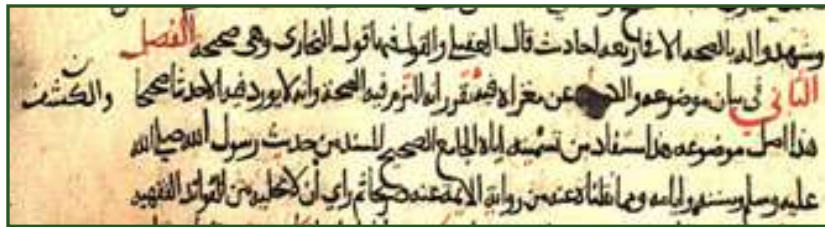 وشهدوا له بالصحة الا في اربعة احاديث قال العقيلي والقول فيها قول البخاري وهي صحيحة الفصل
الثاني في بيان موضوعه والكشف عن مغزاه فيه تقرر انه التزم فيه الصحة وانه لا يورد فيه الا حديثا صحيحا
هذا اصل موضوعه هذا مستفاد من تسميته اياه الجامع الصحيح المسند من حديث رسول الله صلى الله
عليه وسلم وسننه وايامه ومما نقلناه عنه من رواية الائمة عنه صريحا ثم راى ان لا يخليه من الفوائد الفقهية